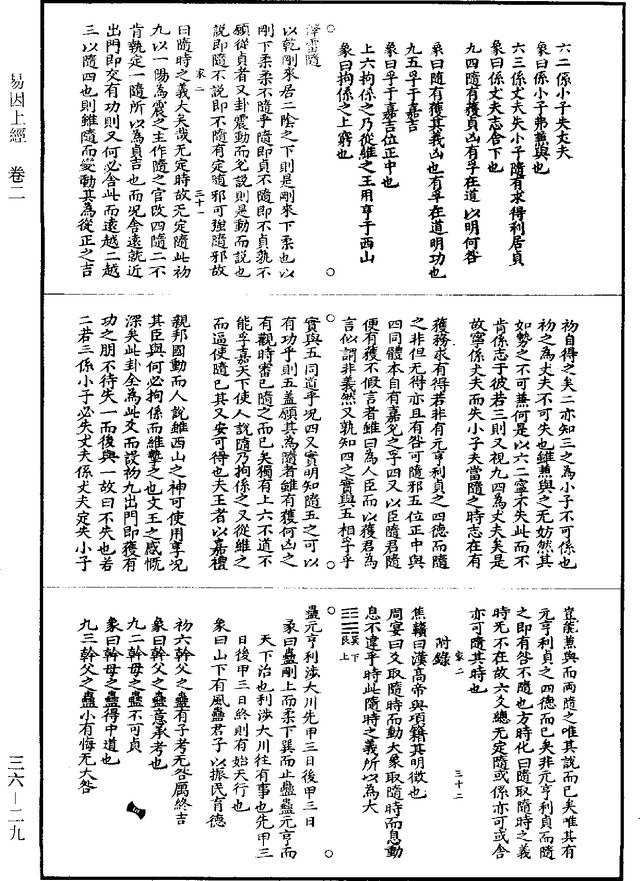 易因上經　卷二
三六—二九
六二係小子失丈夫
象曰係小子弗兼與也
六三係丈夫失小子隨有求得利居貞
象曰係丈夫志舍下也
九四隨有獲貞凶有孚在道以明何咎
象曰隨有獲其義凶也有孚在道明功也
九五孚于嘉吉
象曰孚于嘉吉位正中也
上六拘係之乃從維之王用亨于西山
象曰拘係之上窮也
澤雷隨
以乾剛來居二陰之下則是剛來下柔也以
剛下柔柔不隨乎隨即貞不隨即不貞孰不
願從貞者又卦震動而兌說則是動而說也
說即隨不說即不隨有定隨邪可強隨邪故
家二　三十一
曰隨時之義大矣哉无定時故无定隨此初
九以一陽為震之主作隨之官改四隨二不
肯執定一隨所以為貞吉也而況舍遠就近
出門即交有功則又何必舍此而遠越二越
三以隨四也則雖隨而變動其為從正之吉
初自得之矣二亦知三之為小子不可係也
初之為丈夫不可失也雖兼與之无妨然其
如勢之不可兼何是以六二寧不失此而不
肯係志于彼若三則又視九四為丈夫矣是
故寧係丈夫而失小子夫當隨之時志在有
獲務求有得若非有元亨利貞之四德而隨
之非但无得亦且有咎可隨邪五位正中與
四同體本自有嘉兌之孚四又以臣隨君隨
便有獲不假言者雖曰為人臣而以獲君為
言似謂非義然又孰知四之實與五相孚乎
實與五同道乎況四又實明知隨五之可以
有功乎則五蓋願其為隨者雖有獲何凶之
有觀時審己隨之而已矣獨有上六不道不
能孚嘉天下使人說隨乃拘係之又從維之
而逼使隨已其又安可得也夫王者以嘉禮
親邦國動而人說雖西山之神可使用享況
其臣與何必拘係而維摯之也文王之感慨
深矣此卦全為此爻而設初九出門即獲有
功之朋不待失一而後與一故曰不失也若
二若三係小子必失丈夫係丈夫定失小子
豈能兼與而兩隨之唯其說而已矣唯其有
元亨利貞之四德而已矣非元亨利貞而隨
之即有咎不隨也方時化曰隨取隨時之義
時无不在故六爻總无定隨或係亦可或舍
亦可隨其時也
附錄
家二　三十二
焦贛曰漢高帝與項籍其明徵也
周宴曰爻取隨時而動大象取隨時而息動
息不違乎時此隨時之義所以為大
巽下
艮上
蠱元亨利涉大川先甲三日後甲三日
彖曰蠱剛上而柔下巽而止蠱蠱元亨而
天下治也利涉大川往有事也先甲三
日後甲三日終則有始天行也
象曰山下有風蠱君子以振民育德
初六幹父之蠱有子考无咎厲終吉
象曰幹父之蠱意承考也
九二幹母之蠱不可貞
象曰幹母之蠱得中道也
九三幹父之蠱小有悔无大咎